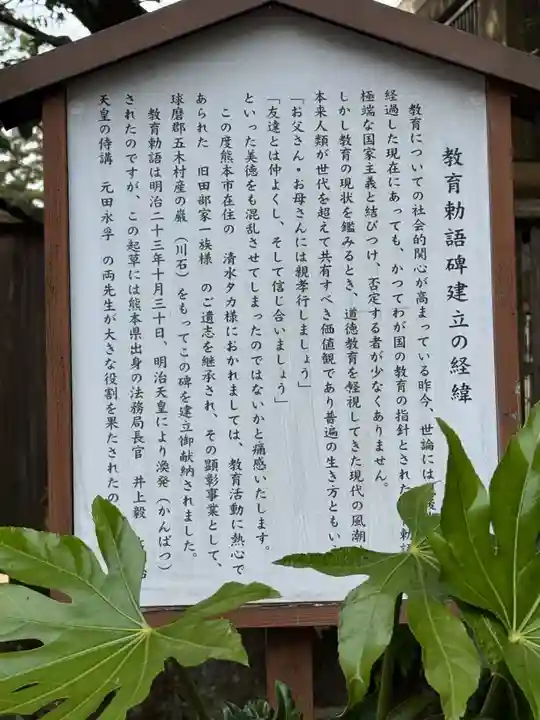 教育勅語碑建立の経緯
教育についての社会的関心が高まっている昨今、世論には
経過した現在にあっても、かつてわが国の教育の指針とされた
極端な国家主義と結びつけ、否定する者が少なくありません。
しかし教育の現状を鑑みるとき、道徳教育を軽視してきた現代の風潮
本来人類が世代を超えて共有すべき価値観であり普遍の生き方ともい
「お父さん・お母さんには親孝行しましょう」
「友達とは仲よくし、そして信じ合いましょう」
といった美徳をも混乱させてしまったのではないかと痛感いたします。
この度熊本市在住の 清水タカ様におかれましては、教育活動に熱心で
あられた 旧田部家一族様 のご遺志を継承され、その顕彰事業として、
球磨郡五木村産の巌（川石）をもってこの碑を建立御献納されました。
教育勅語は明治二十三年十月三十日、明治天皇により渙発（かんぱつ）
されたのですが、この起草には熊本県出身の法務局長官 井上毅
天皇の侍講 元田永孚 の両先生が大きな役割を果たされたの